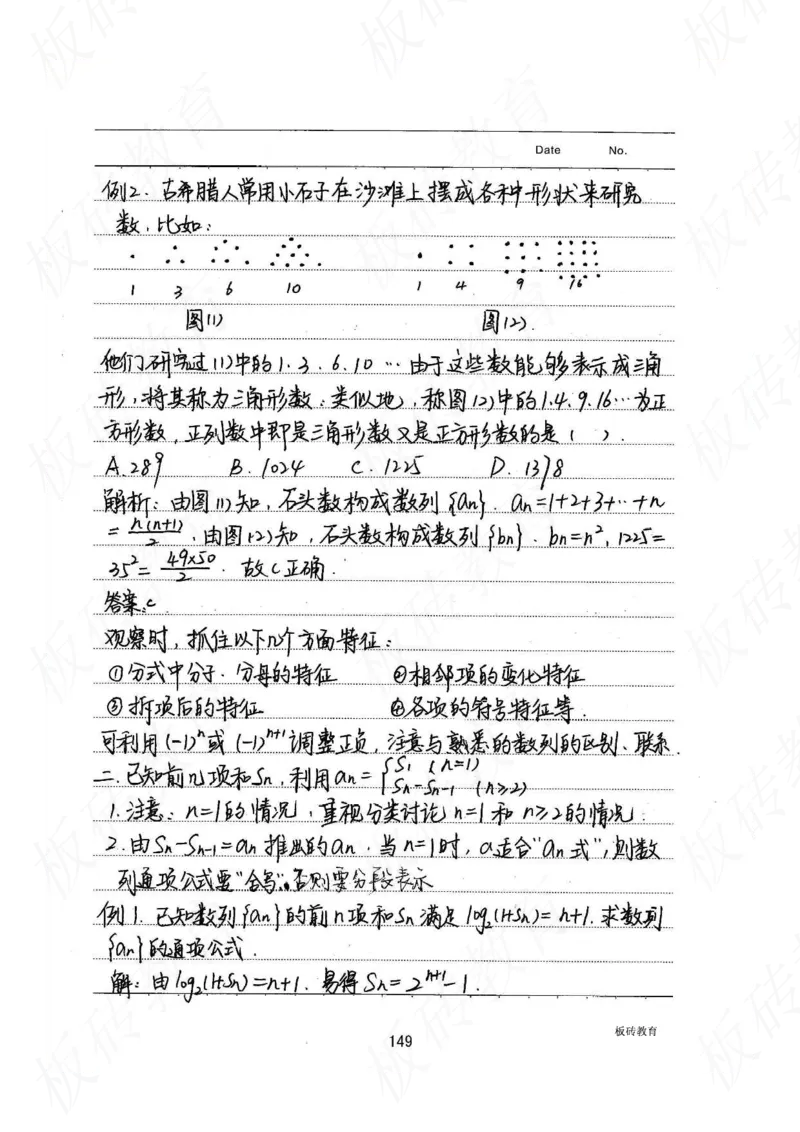 Date No.
例2. 古希腊人常用小石子在沙滩上摆成各种形状来研究
数, 比如:
1 3 6 10 1 4 9 16
图(1) 图(2).
他们研究过(1)中的1.3.6.10…由于这些数能够表示成三角
形, 将其称为三角形数; 类似地, 称图(2)中的1.4.9.16…为正
方形数, 正列数中即是三角形数又是正方形数的是( ).
A.289 B.1024 C.1225 D.1378
解析: 由图(1)知, 石头数构成数列{an}. an=1+2+3+…+n
= n(n+1)/2. 由图(2)知, 石头数构成数列{bn}. bn=n², 1225=
35²= 49×50/2. 故C正确.
答案:C
观察时, 抓住以下几个方面特征:
①分式中分子.分母的特征 ②相邻项的变化特征
③拆项后的特征 ④各项的符号特征等.
可利用(-1)ⁿ或(-1)ⁿ⁺¹调整正负, 注意与熟悉的数列的区别、联系.
二.已知前n项和Sn, 利用an={S1 (n=1) Sn-Sn-1 (n≥2)
1.注意: n=1的情况, 重视分类讨论n=1和n≥2的情况.
2.由Sn-Sn-1=an推出的an. 当n=1时, a适合"an式", 则数
列通项公式要"合写". 否则要分段表示
例1. 已知数列{an}的前n项和Sn满足log₂(1+Sn)=n+1. 求数列
{an}的通项公式.
解: 由log₂(1+Sn)=n+1. 易得Sn=2ⁿ⁺¹-1.
149
板砖教育